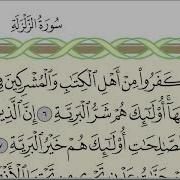 سُورَةُ الزَّلْزَلَةِ
كَفَرُوا۟ مِنْ أَهْلِ ٱلْكِتَـٰبِ وَٱلْمُشْرِكِينَ فِى
أُو۟لَـٰٓئِكَ هُمْ شَرُّ ٱلْبَرِيَّةِ ٦ إِنَّ ٱلَّذِ
ٱلصَّـٰلِحَـٰتِ أُو۟لَـٰٓئِكَ هُمْ خَيْرُ ٱلْبَرِيَّةِ ٧